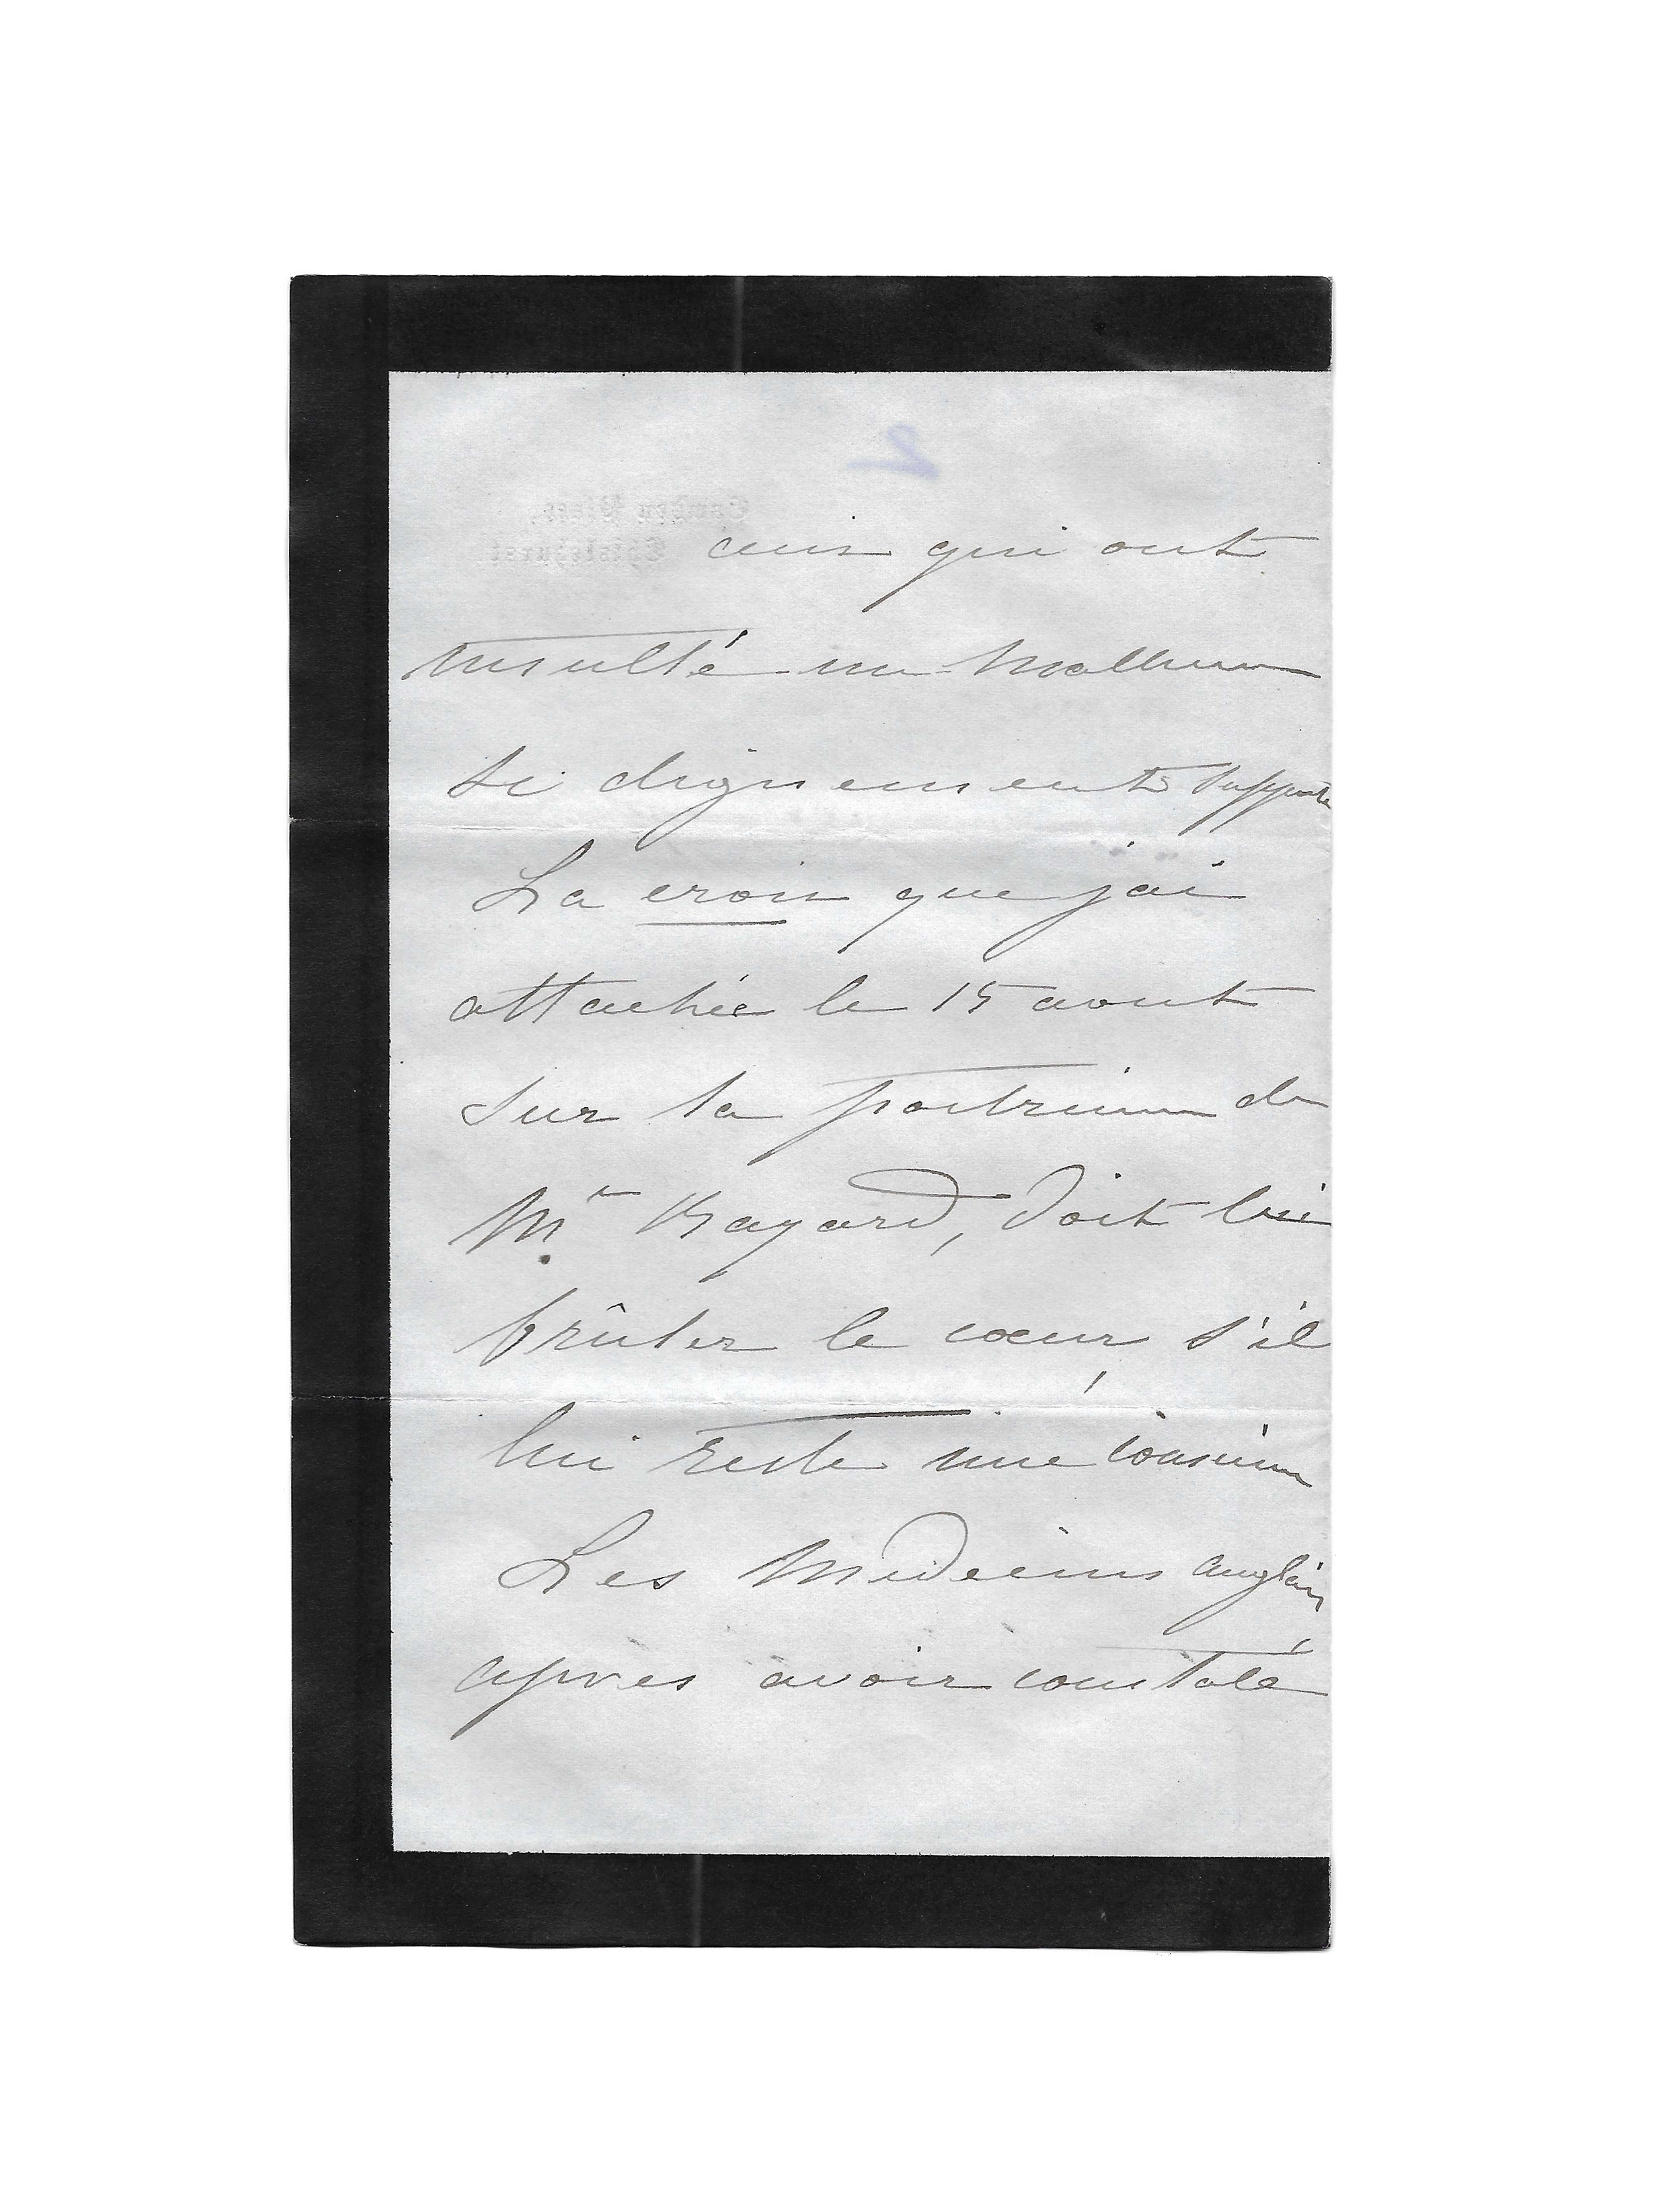 2
Camden Place,
Chislehurst.
ceux qui ont
insulté un malheur
si dignement supporté
La croix que j'ai
attachée le 15 aout
sur la poitrine de
Mr Bayard, doit lui
brûler le cœur s'il
lui reste une
Les Médecins anglais
apres avoir constaté